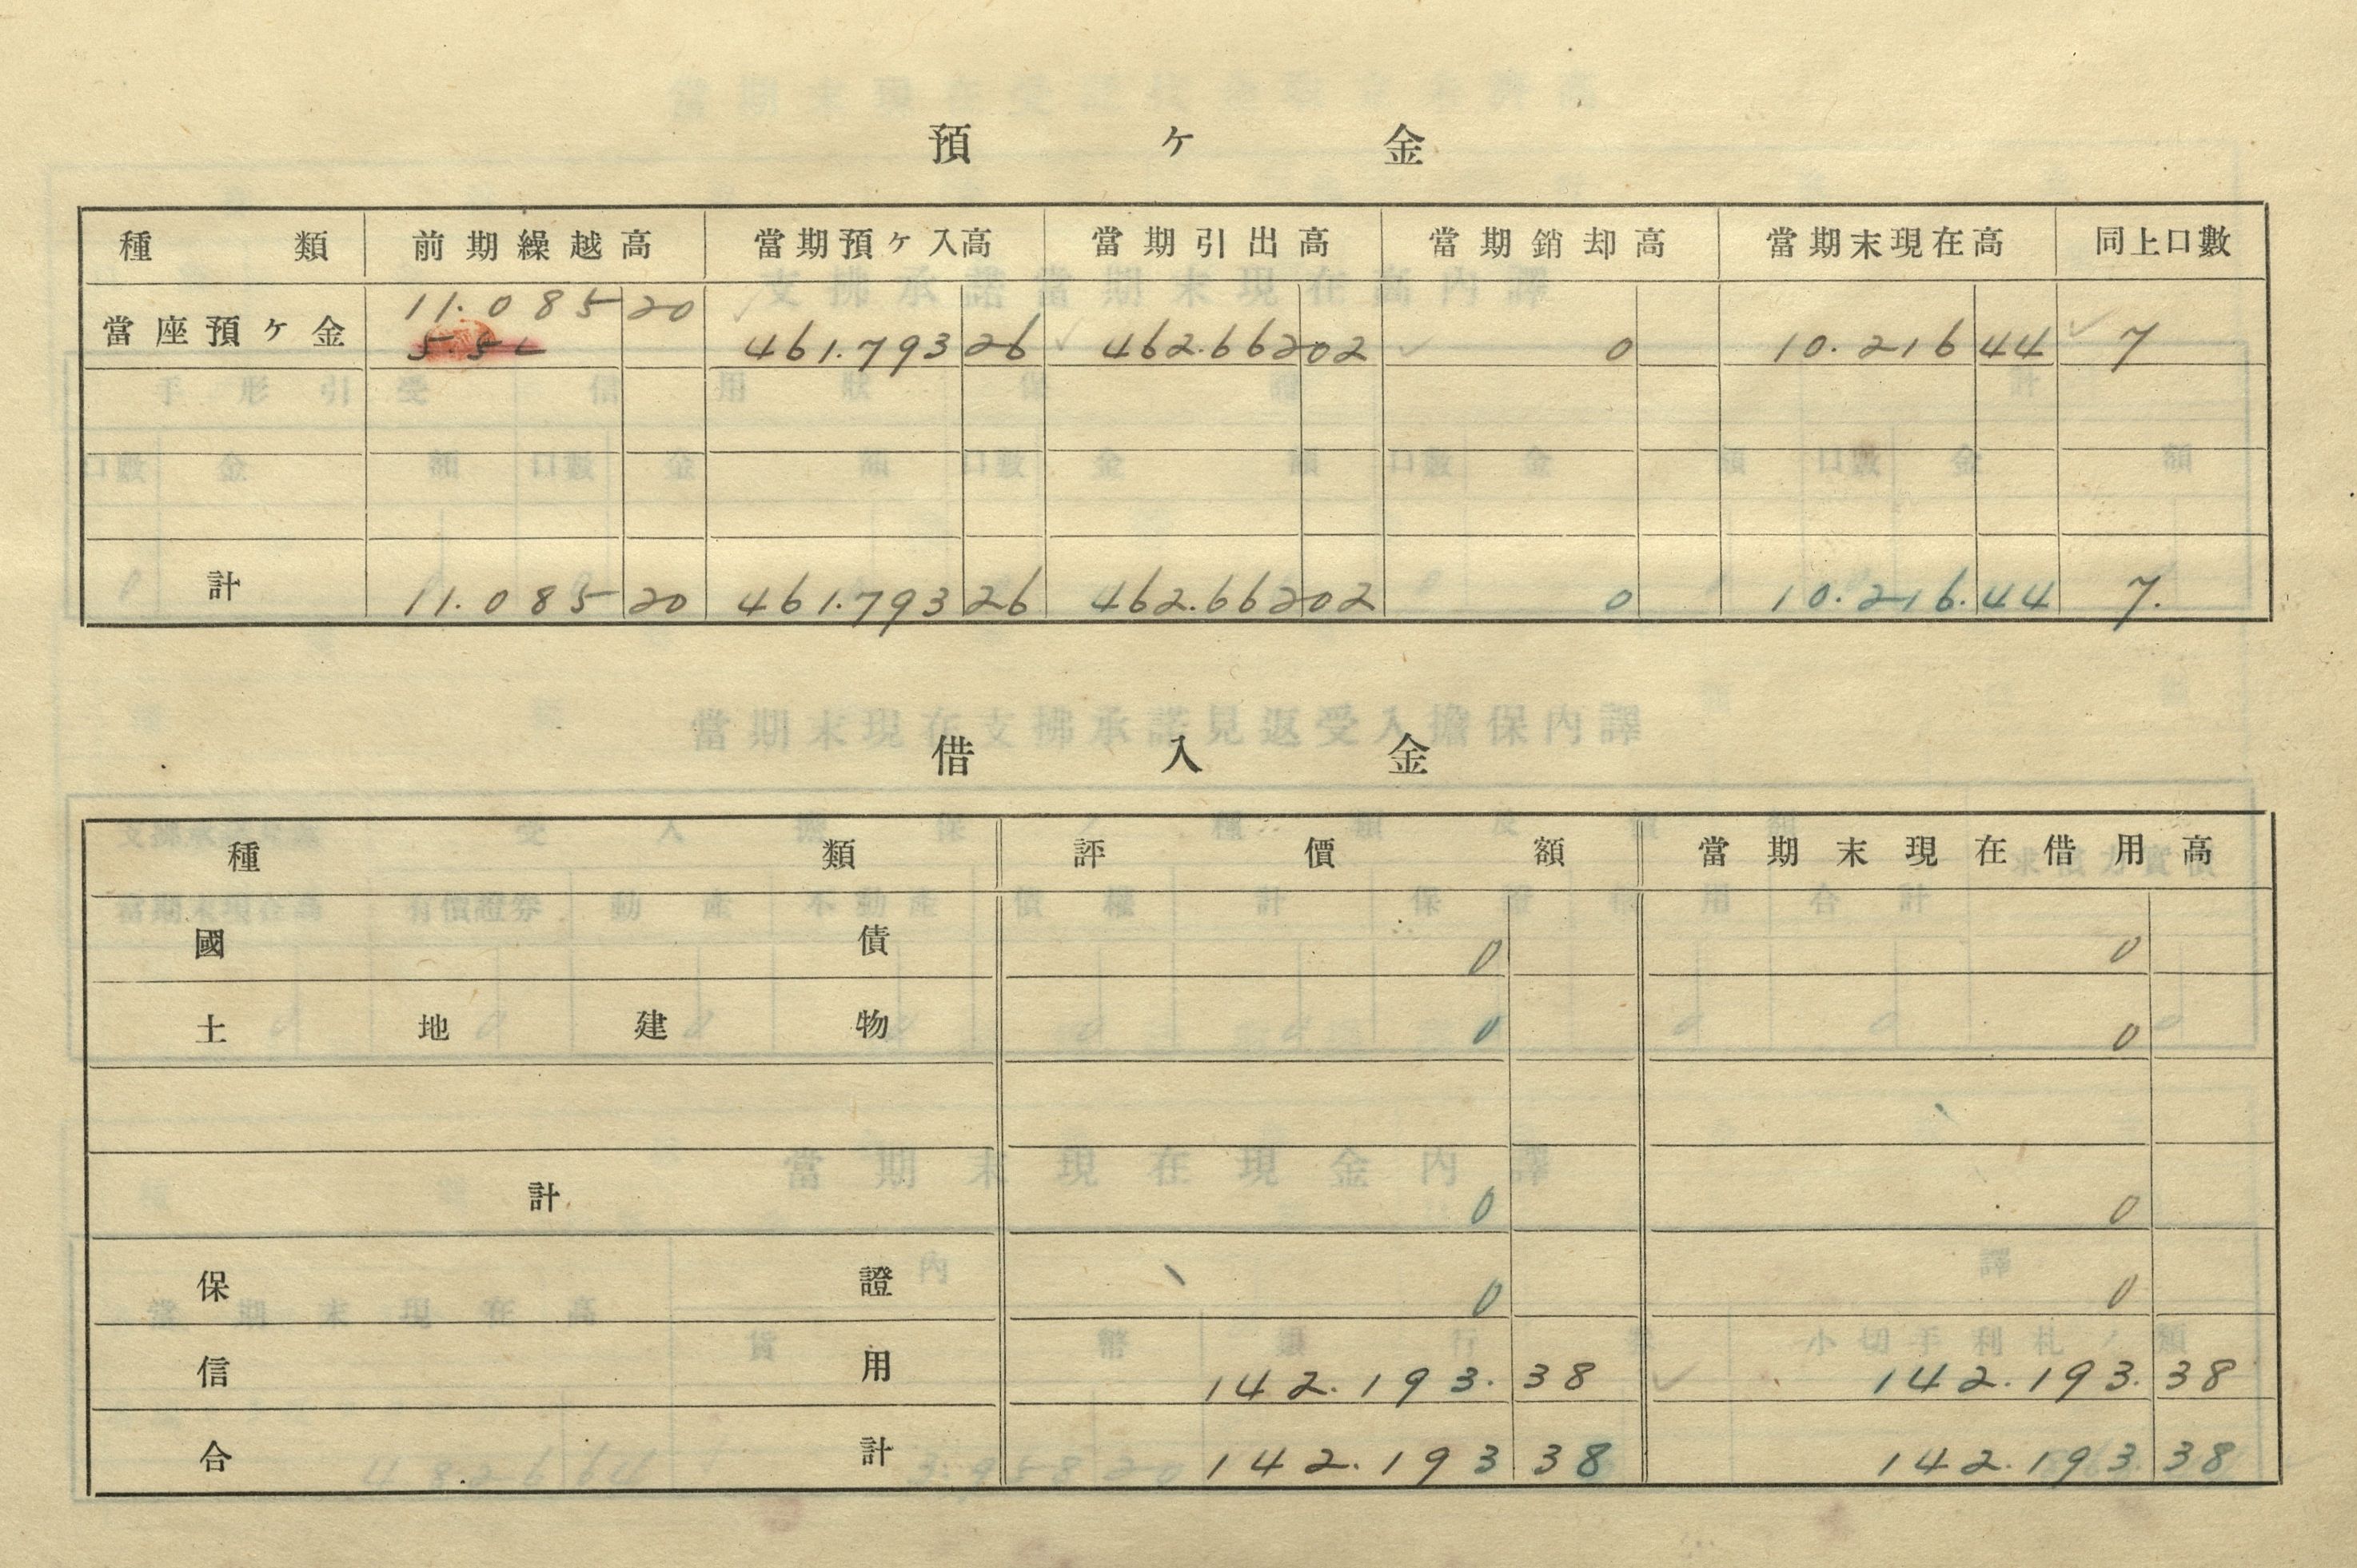 預ケ金
種類 前期繰越高 當期預ケ入高 當期引出高 當期銷却高 當期末現在高 同上口數
11.085 20
當座預ケ金 461.793 26 462.662 02 0 10.216 44 7
計 11.085 20 461.793 26 462.662 02 0 10.216.44 7.
借入金
種類 評價額 當期末現在借用高
國債 0 0
土地建物 0 0
計 0 0
保證 0 0
信用 142.193. 38 142.193. 38
合計 142.193 38 142.193. 38